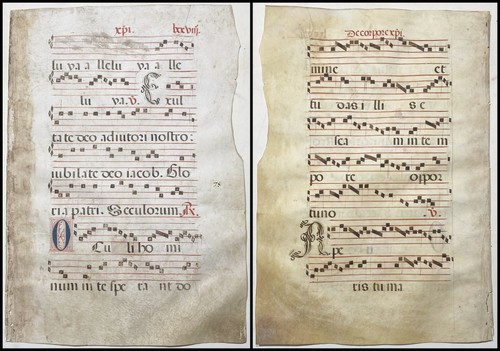 xpi. lxxviij.
lu ya alle lu ya alle
lu ya. V. E xul
ta te deo adiutori nostro:
iubilate deo iacob. Glo
ria patri. Seculorum. R.
O Cu li ho mi
num in te spe ra nt do
De corpore xpi.
mine et
tu das il li s e
sca m in te m
po re op por
tuno .V.
A pe
ris tu ma